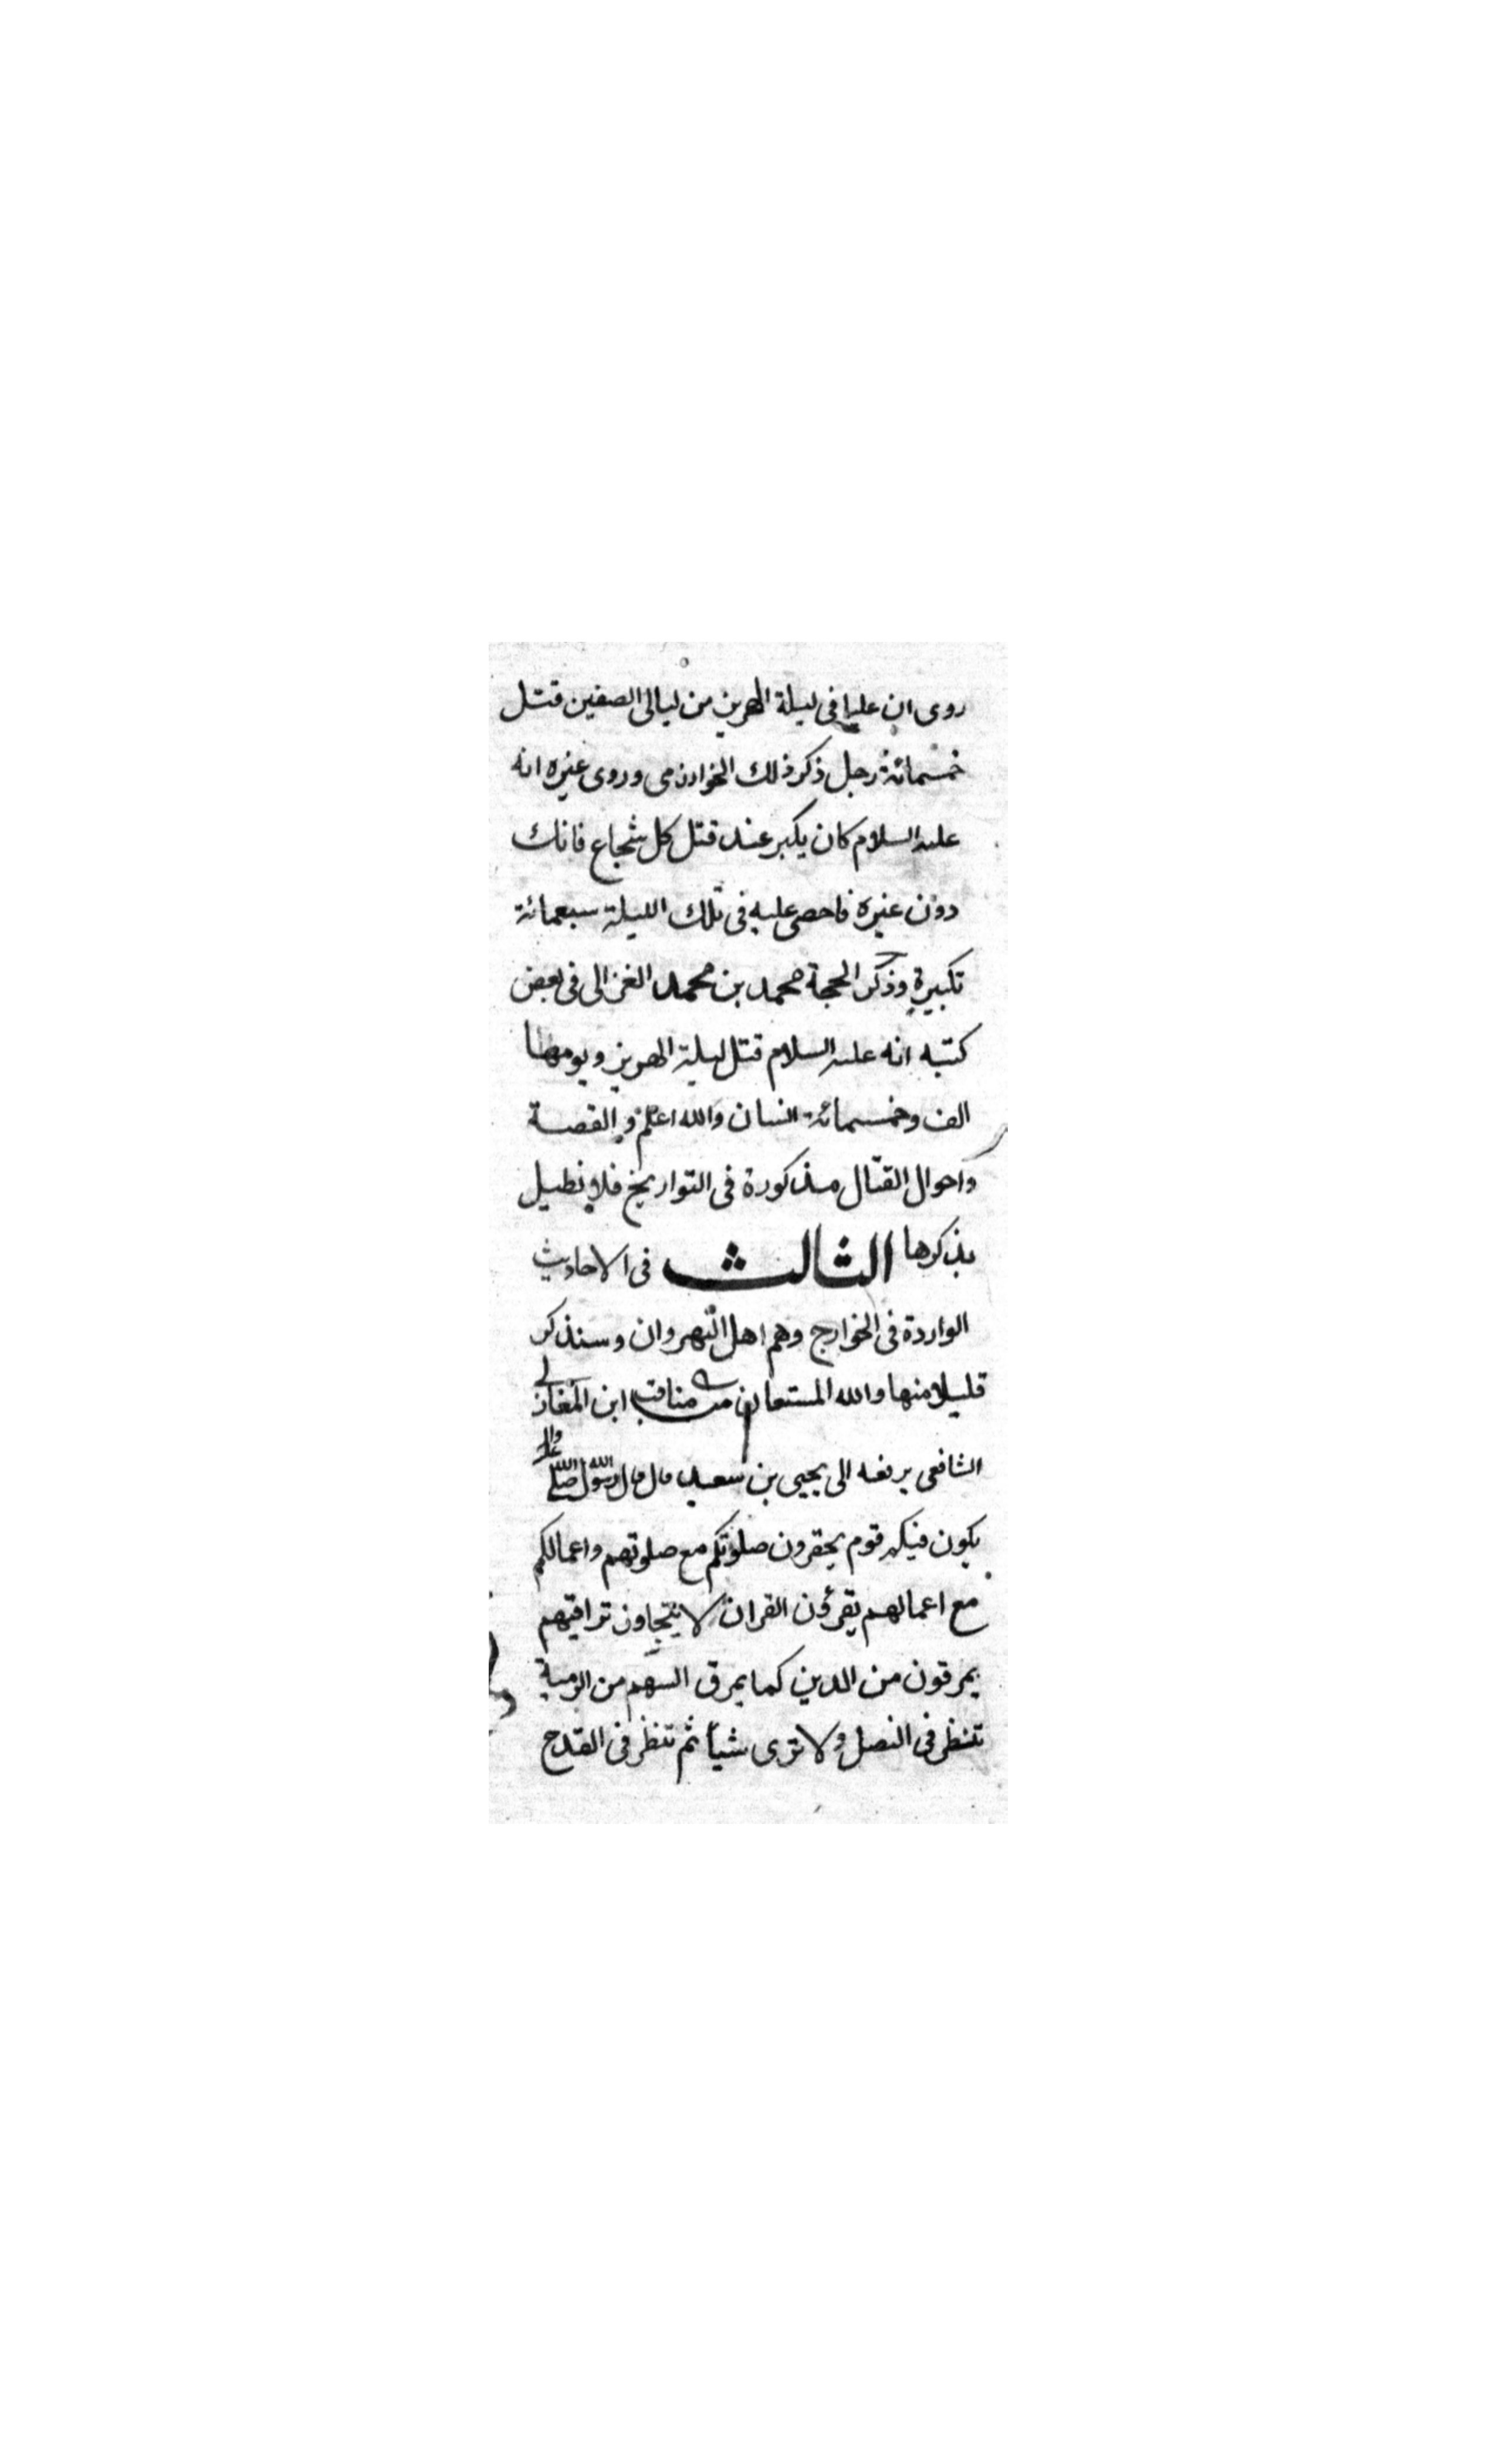 روى ان عليا فى ليلة الهرير من ليالى الصفين قتل
خمسمائة رجل ذكر ذلك الخوارزمى وروى غيره انه
عليه السلام كان يكبر عند قتل كل شجاع فاتك
دون غيره فاحصى عليه فى تلك الليلة سبعمائة
تكبيرة وذكر الحجة محمد بن محمد الغزالى فى بعض
كتبه انه عليه السلام قتل ليلة الهرير ويومها
الف وخمسمائة انسان والله اعلم والقصة
واحوال القتال مذكورة فى التواريخ فلا نطيل
بذكرها الثالث فى الاحاديث
الواردة فى الخوارج وهم اهل النهروان وسنذكر
قليلا منها والله المستعان من مناقب ابن المغازلى
الشافعى يرفعه الى يحيى بن سعيد قال قال رسول الله صلى الله عليه واله
يكون فيكم قوم يحقرون صلوتكم مع صلوتهم واعمالكم
مع اعمالهم يقرؤن القران لا يتجاوز تراقيهم
يمرقون من الدين كما يمرق السهم من الرمية
تنظر فى النصل ولا ترى شيأ ثم تنظر فى القدح